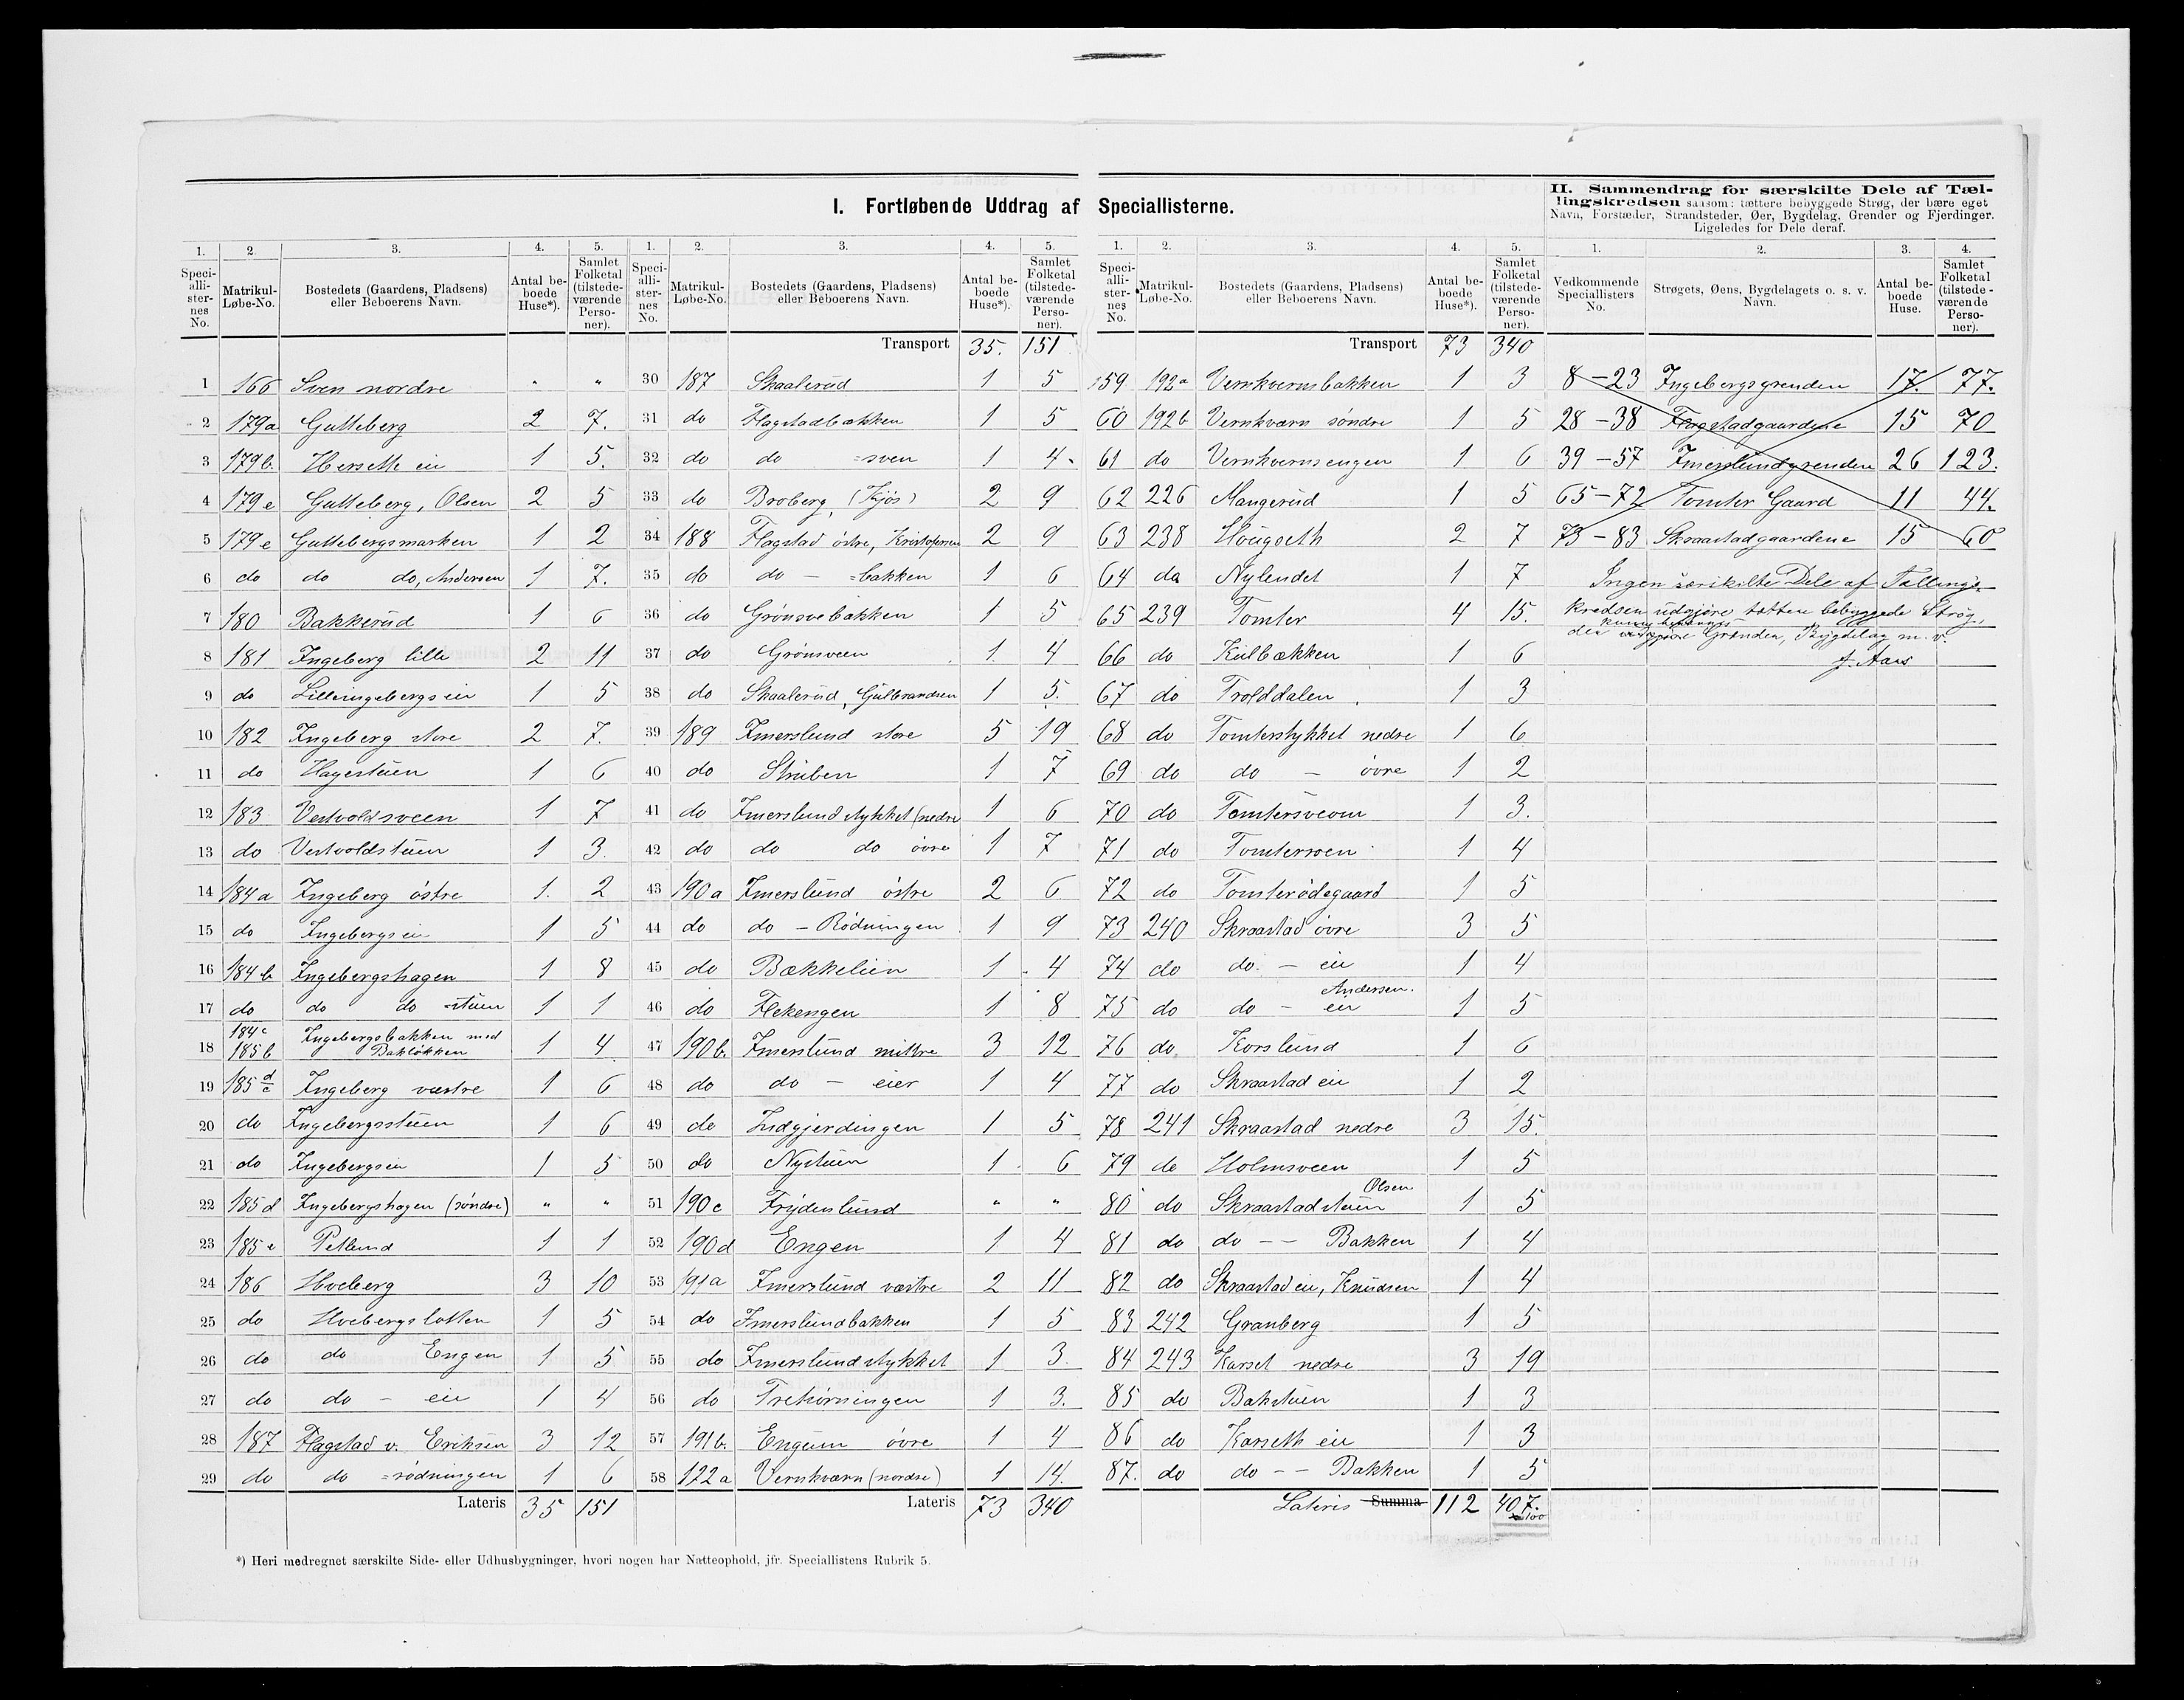 I. Fortløbende Uddrag af Speciallisterne.
II. Sammendrag for særskilte Dele af Tæl-
lingskredsen saasom: tættere bebyggede Strøg, der bære eget
Navn, Forstæder, Strandsteder, Øer, Bygdelag, Grender og Fjerdinger.
Ligeledes for Dele deraf.
1. 2. 3. 4. 5.
Speciallisternes No. Matrikul-Løbe-No. Bostedets (Gaardens, Pladsens) eller Beboerens Navn. Antal beboede Huse*). Samlet Folketal (tilstedeværende Personer).
1 166 Sven nordre " "
2 179a Gutteberg 2 7.
3 179b. Hersetteie 1 5.
4 179e Gutteberg, Olsen 2 5
5 179e Guttebergsmarken 1 2
6 do do do, Andersen 1 7.
7 180 Bakkerud 1 6
8 181 Ingeberg lille 2 11
9 do Lilleingebergseie 1 5
10 182 Ingeberg store 2 7.
11 do Hagestuen 1 6
12 183 Vestvoldsveen 1 7
13 do Vestvoldstuen 1 3.
14 184a Ingeberg østre 1. 2
15 do Ingebergseie 1 5
16 184b Ingebergshagen 1 8
17 do do do =stuen 1 1
18 184c 185b Ingebergsbakken med Bakløkken 1 4
19 185 d/c Ingeberg vestre 1 6
20 do Ingebergsstuen 1 6
21 do Ingebergseie 1 5
22 185d Ingebergshagen (søndre) " "
23 185e Petlund 1 1
24 186 Hoeberg 3 10
25 do Hoebergslotten 1 5
26 do do Engen 1 5
27 do do – eie 1 4
28 187 Flagstad v. Eriksen 3 12
29 do do =rødningen 1 6
Lateris 35 151
1. 2. 3. 4. 5.
Speciallisternes No. Matrikul-Løbe-No. Bostedets (Gaardens, Pladsens) eller Beboerens Navn. Antal beboede Huse*). Samlet Folketal (tilstedeværende Personer).
Transport 35. 151
30 187 Skaalerud 1 5
31 do Flagstadbakken 1 5
32 do do =sven 1 4
33 do Broberg, (Kjøs) 2 9
34 188 Flagstad østre, Kristofersen 2 9
35 do do – =bakken 1 6
36 do Grønsvebakken 1 5
37 do Grønsveen 1 4
38 do Skaalerud, Gulbrandsen 1 5.
39 189 Imerslund store 5 19
40 do Stuben 1 7
41 do Imerslundstykket (nedre 1 6
42 do do do øvre 1 7
43 190a Imerslund østre 2 6
44 do do – Rødningen 1 9
45 do Bækkelien 1 4
46 do Flekengen 1 8
47 190b. Imerslund mittre 3 12
48 do do – eier 1 4
49 do Indgjerdingen 1 5
50 do Nystuen 1 6
51 190c Frydenlund " "
52 190d Engen 1 4
53 191a Imerslund vestre 2 11
54 do Imerslundbakken 1 5
55 do Imerslundstykket 1 3.
56 do Trekørningen 1 3.
57 191b. Engum øvre 1 4
58 122a Vernkværn (nordre) 1 14.
Lateris 73 340
1. 2. 3. 4. 5.
Speciallisternes No. Matrikul-Løbe-No. Bostedets (Gaardens, Pladsens) eller Beboerens Navn. Antal beboede Huse*). Samlet Folketal (tilstedeværende Personer).
Transport 73 340
59 192a Vernkvernsbakken 1 3
60 192b Vernkværn søndre 1 5
61 do Vernkvernsengen 1 6
62 226 Mangerud 1 5
63 238 Hougseth 2 7
64 da Nylendet 1 7
65 239 Tomter 4 15.
66 do Kulbækken 1 6
67 do Trolddalen 1 3
68 do Tomterstykket nedre 1 6
69 do do – øvre 1 2
70 do Tomtersveom 1 3.
71 do Tomterroen 1 4
72 do Tomterødegaard 1 5
73 240 Skraastad øvre 3 5
74 do do. – eie 1 4
75 do do – eie Andersen. 1 5
76 do. Korslund 1 6
77 do Skraastad eie 1 2
78 241 Skraastad nedre 3 15.
79 do Holmsveen 1 5
80 do Skraastadstuen Olsen 1 5
81 do do – – Bakken 1 4
82 do Skraastad eie, Knudsen 1 4
83 242 Granberg 1 5
84 243 Karset nedre 3 19
85 do Bakstuen 1 3
86 do Karseth eie 1 3
87. do do – – Bakken 1 5
Lateris Summa 112 407.
1. 2. 3. 4.
Vedkommende Speciallisters No. Strøgets, Øens, Bygdelagets o. s. v. Navn. Antal beboede Huse. Samlet Folketal (tilstedeværende Personer).
8 – 23 Ingebergsgrenden 17. 77.
28 – 38 Flagstadgaardene 15 70
39 – 57 Imerslundgrenden 26 123.
65 – 72 Tomter Gaard 11 44.
73 – 83 Skraastadgaardene 15 60
Ingen særskilte Dele af Tællings-
kredsen udgjøre tættere bebyggede Strøg,
der Grænder, Bygdelag m. v.
J. Aars
*) Heri medregnet særskilte Side- eller Udhusbygninger, hvori nogen har Natteophold, jfr. Speciallistens Rubrik 5.